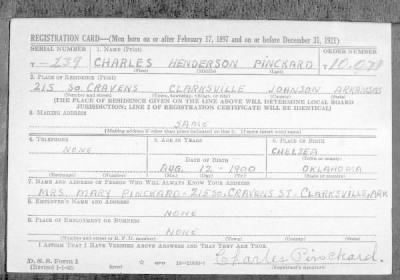 REGISTRATION CARD—(Men born on or after February 17, 1897 and on or before December 31, 1921)
SERIAL NUMBER 1. NAME (Print) ORDER NUMBER
T-239 CHARLES HENDERSON PINCKARD T10,078
(First) (Middle) (Last)
2. PLACE OF RESIDENCE (Print)
215 SO. CRAVENS CLARKSVILLE JOHNSON ARKANSAS
(Number and street) (Town, township, village, or city) (County) (State)
[THE PLACE OF RESIDENCE GIVEN ON THE LINE ABOVE WILL DETERMINE LOCAL BOARD
JURISDICTION; LINE 2 OF REGISTRATION CERTIFICATE WILL BE IDENTICAL]
3. MAILING ADDRESS
SAME
[Mailing address if other than place indicated on line 2. If same insert word same]
4. TELEPHONE 5. AGE IN YEARS 6. PLACE OF BIRTH
NONE CHELSEA
DATE OF BIRTH (Town or county)
AUG. 12-1900 OKLAHOMA
(Exchange) (Number) (Mo.) (Day) (Yr.) (State or country)
7. NAME AND ADDRESS OF PERSON WHO WILL ALWAYS KNOW YOUR ADDRESS
MRS. MARY PINCKARD-215 SO. CRAVENS ST. CLARKSVILLE, ARK
8. EMPLOYER'S NAME AND ADDRESS
NONE
9. PLACE OF EMPLOYMENT OR BUSINESS
NONE
(Number and street or R. F. D. number) (Town) (County) (State)
I AFFIRM THAT I HAVE VERIFIED ABOVE ANSWERS AND THAT THEY ARE TRUE.
D. S. S. Form 1 Charles Pinckard.
(Revised 1-1-42) (over) 16—21630-1 (Registrant's signature)